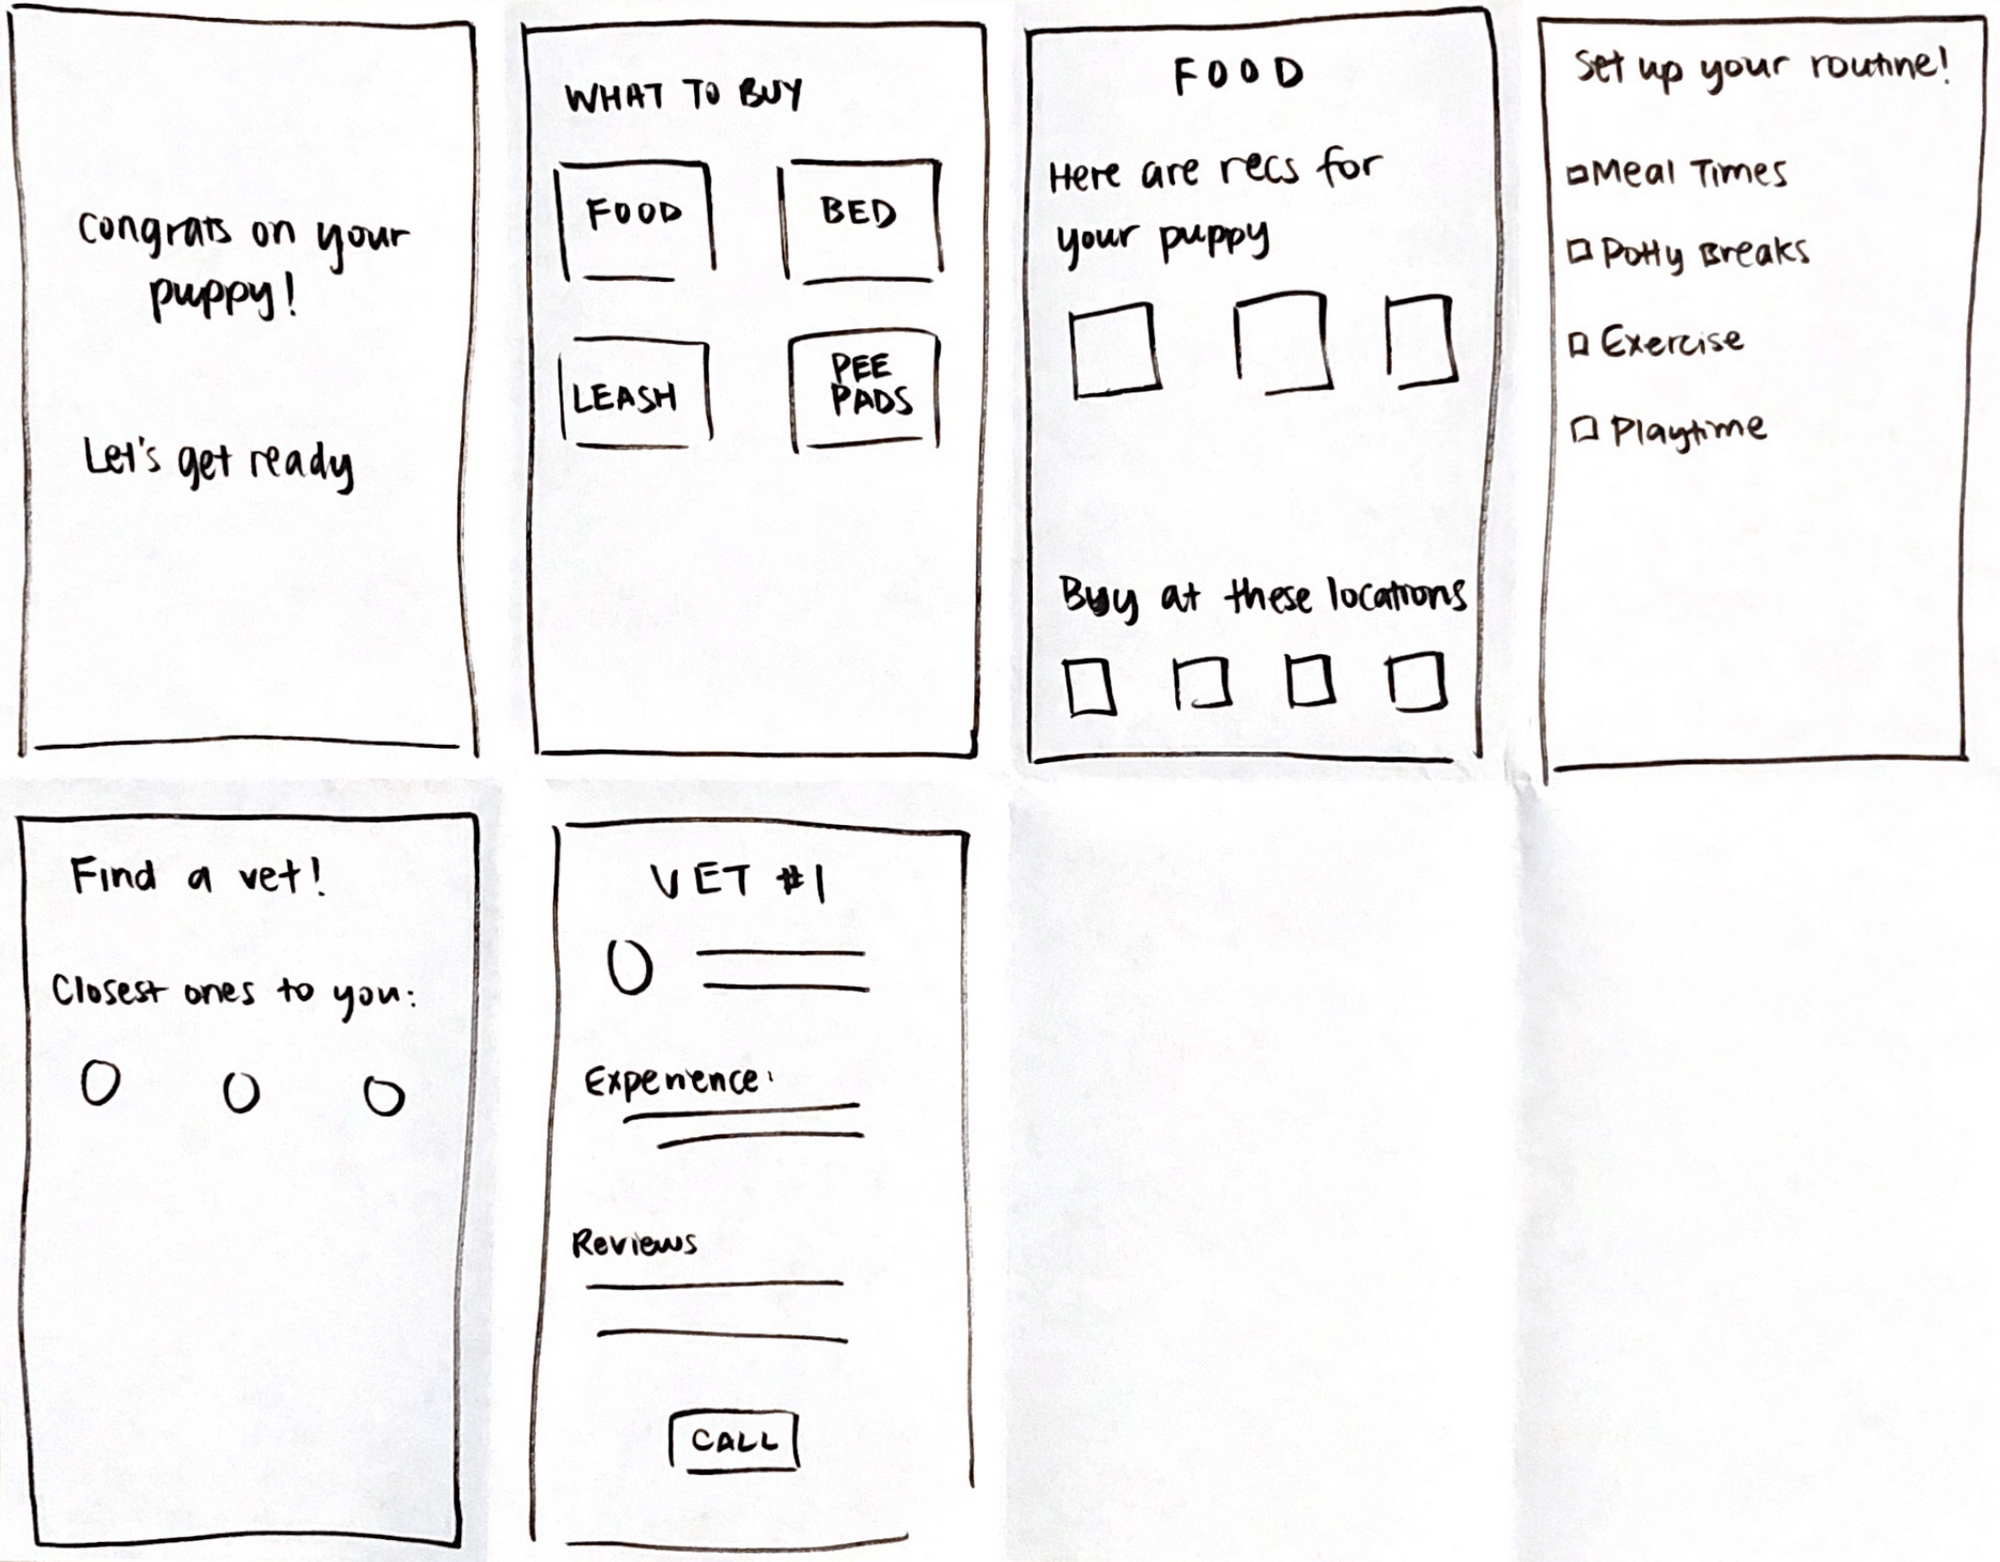 Congrats on your
puppy!
Let's get ready
WHAT TO BUY
FOOD
BED
LEASH
PEE
PADS
FOOD
Here are recs for
your puppy
Buy at these locations
Set up your routine!
Meal Times
Potty Breaks
Exercise
Playtime
Find a vet!
Closest ones to you:
VET #1
Experience:
Reviews
CALL